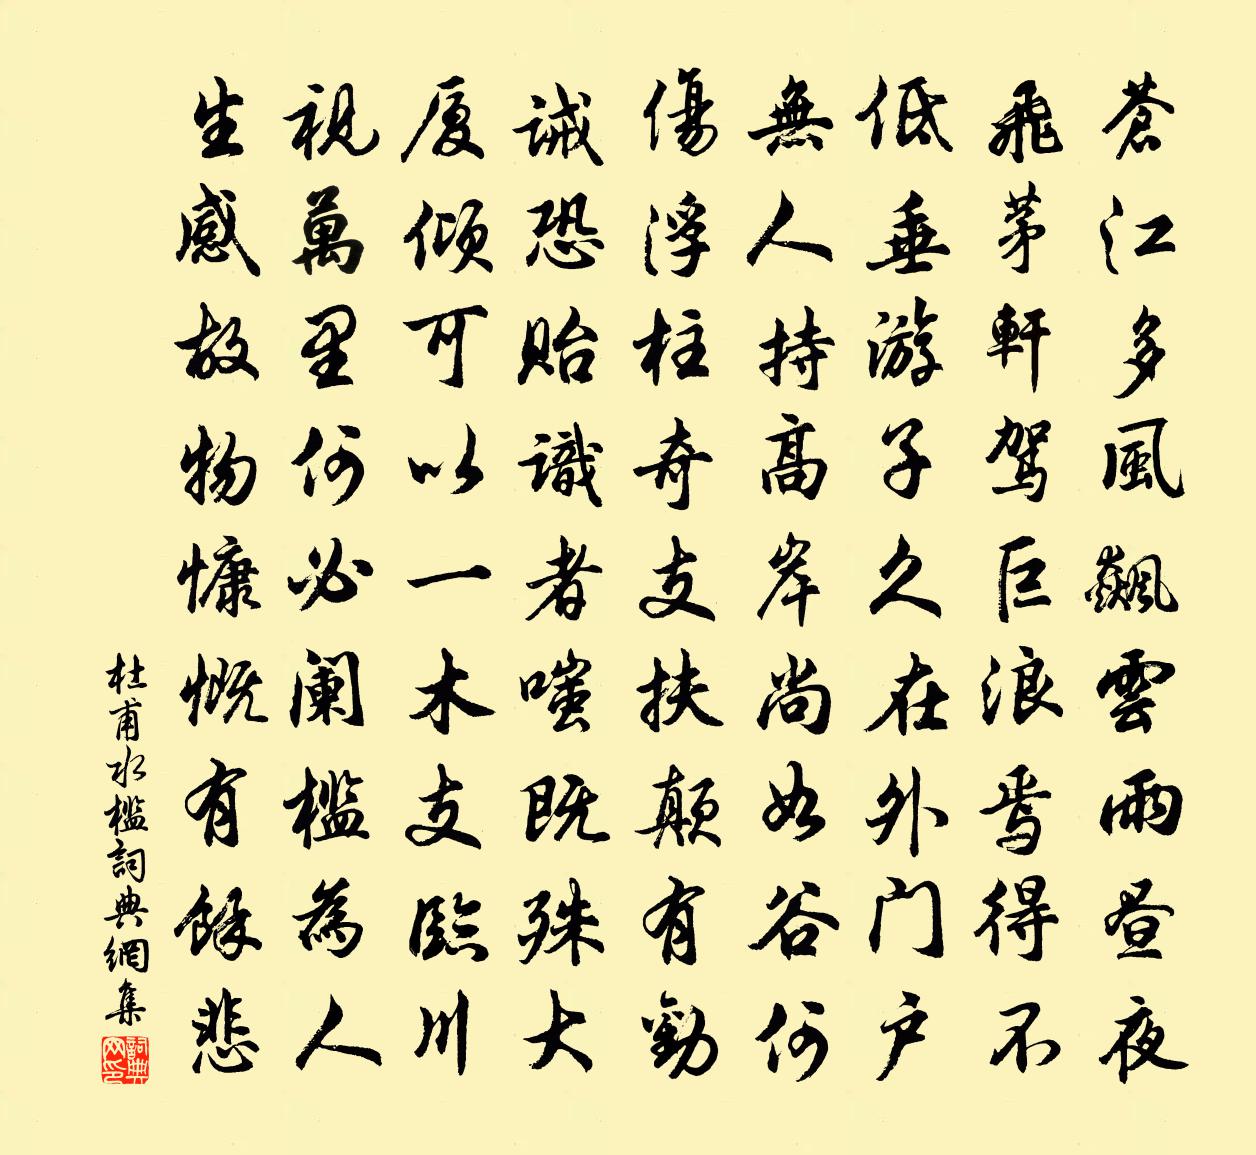 蒼江多風飆雲雨昼夜
飛茅軒駕巨浪焉得不
低垂游子久在外门户
無人持高岸尚如谷何
傷浮柱奇支扶颠有勤
诫恐貽識者嗤既殊大
厦倾可以一木支臨川
視萬里何必阑檻為人
生感故物慷慨有餘悲
杜甫水檻詞典網集
詞典网印